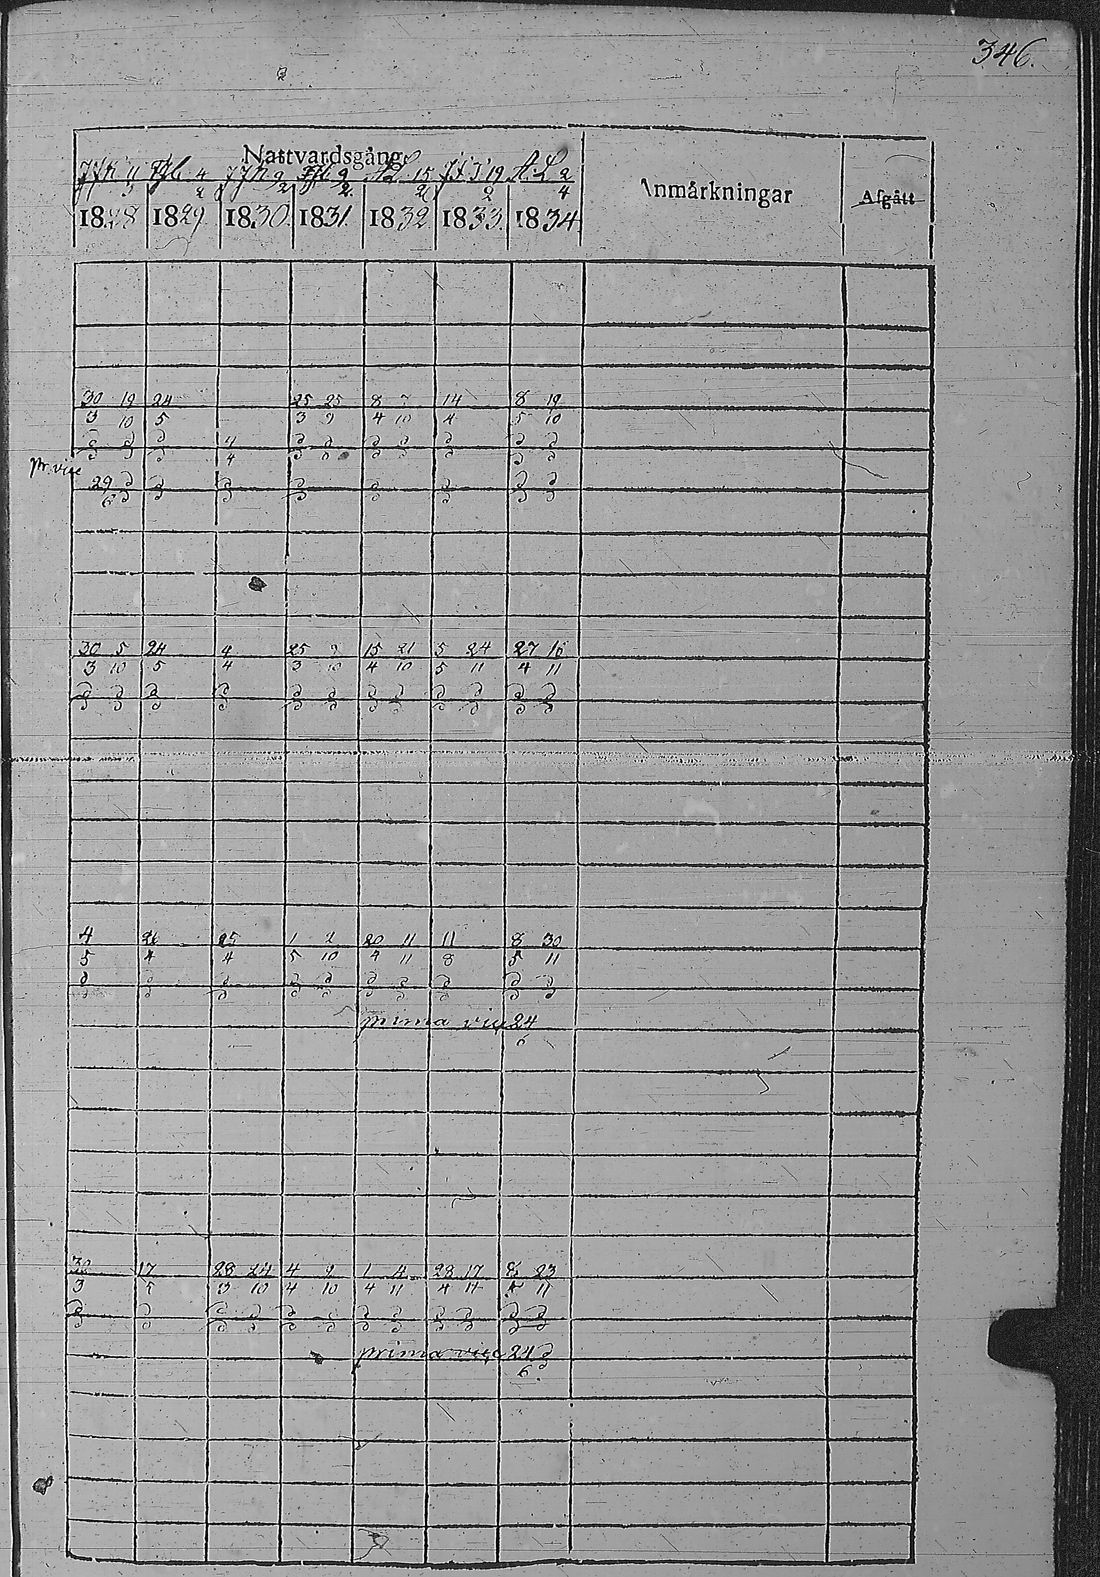 346.
Nattvardsgång
11 4 9 9 15 19 2
3 2 2 2 2 2 4
1828 1829 1830. 1831. 1832 1833. 1834.
Anmärkningar
Afgått
30 19 24 25 25 8 7 14 8 19
3 10 5 3 9 4 10 4 5 10
4
4
pr. vice
29
6
30 5 24 4 25 9 15 21 5 24 27 16
3 10 5 4 3 10 4 10 5 11 4 11
4 26 25 1 2 20 11 11 8 30
5 4 4 5 10 4 11 8 5 11
prima vice 24
6
30 17 28 24 4 9 1 4 28 17 8 23
3 5 3 10 4 10 4 11 4 11 5 11
prima vice 24
6.